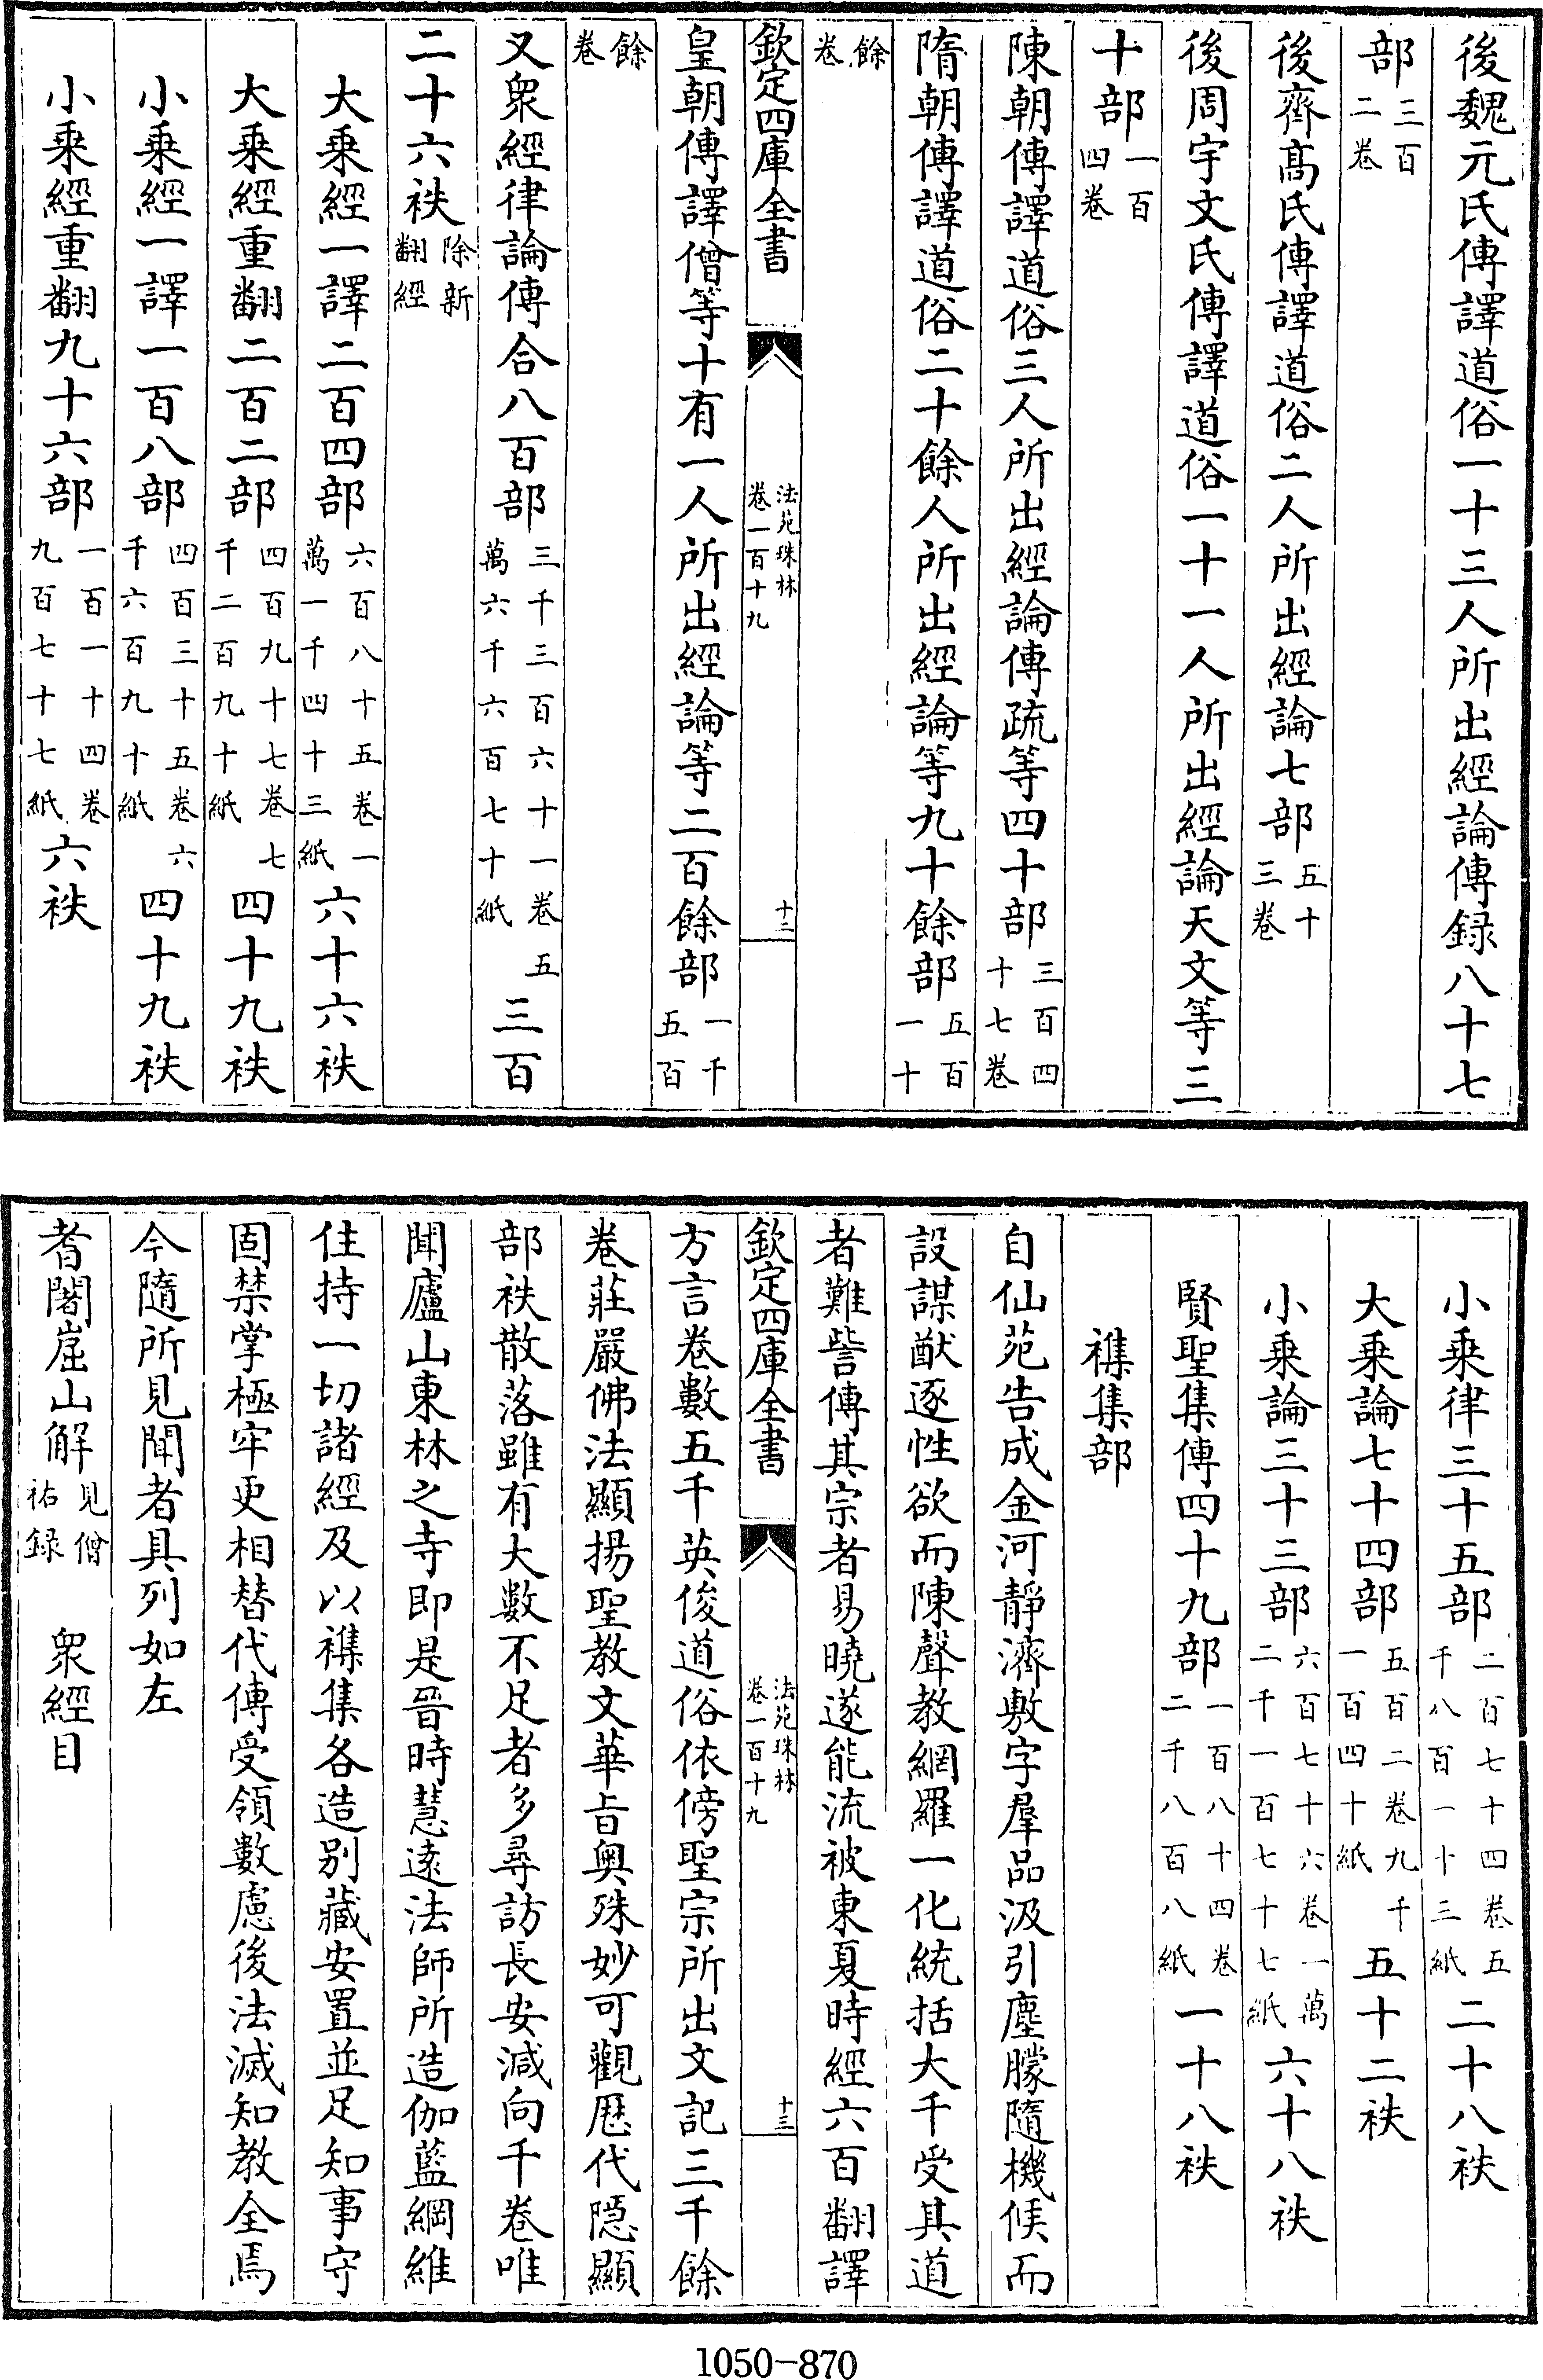 後魏元氏傳譯道俗一十三人所出經論傳録八十七
部三百二卷
後齊髙氏傳譯道俗二人所出經論七部五十三卷
後周宇文氏傳譯道俗一十一人所出經論天文等三
十部一百四卷
陳朝傳譯道俗三人所出經論傳疏等四十部三百四十七卷
隋朝傳譯道俗二十餘人所出經論等九十餘部五百一十
餘卷
欽定四庫全書 法苑珠林卷一百十九 十二
皇朝傳譯僧等十有一人所出經論等二百餘部一千五百
餘卷
又衆經律論傳合八百部三千三百六十一卷五萬六千六百七十紙三百
二十六袟除新翻經
大乗經一譯二百四部六百八十五卷一萬一千四十三紙六十六袟
大乗經重翻二百二部四百九十七卷七千二百九十紙四十九袟
小乗經一譯一百八部四百三十五卷六千六百九十紙四十九袟
小乗經重翻九十六部一百一十四卷九百七十七紙六袟
小乗律三十五部二百七十四卷五千八百一十三紙二十八袟
大乗論七十四部五百二卷九千一百四十紙五十二袟
小乗論三十三部六百七十六卷一萬二千一百七十七紙六十八袟
賢聖集傳四十九部一百八十四卷二千八百八紙一十八袟
襍集部
自仙苑告成金河靜濟敷字羣品汲引塵朦隨機候而
設謀猷逐性欲而陳聲教網羅一化統括大千受其道
者難訾傳其宗者易曉遂能流被東夏時經六百翻譯
欽定四庫全書 法苑珠林卷一百十九 十三
方言卷數五千英俊道俗依傍聖宗所出文記三千餘
卷莊嚴佛法顯揚聖教文華㫖奥殊妙可觀歴代隠顯
部袟散落雖有大數不足者多尋訪長安減向千卷唯
聞廬山東林之寺即是晉時慧逺法師所造伽藍綱維
住持一切諸經及以襍集各造别藏安置並足知事守
固禁掌極牢更相替代傳受領數慮後法滅知教全焉
今隨所見聞者具列如左
耆闍崛山解見僧祐録 衆經目
1050-870